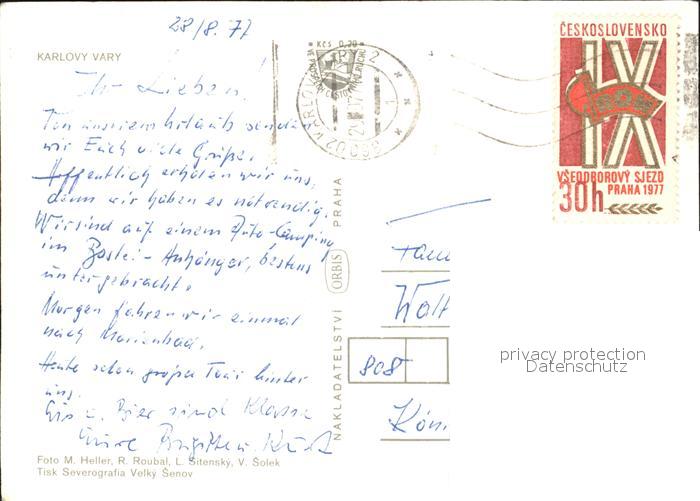 28/8.77
KARLOVY VARY
Ihr Lieben,
Von unserem Urlaub senden
wir Euch viele Grüße.
Hoffentlich erholen wir uns,
denn wir haben es notwendig.
Wir sind auf einem Auto-Camping
im Bastei-Anhänger, bestens
untergebracht.
Morgen fahren wir einmal
nach Marienbad.
Heute schon große Tour hinter
uns.
Eis u. Bier sind Klasse
Eure Brigitte u. Kurt
Foto M. Heller, R. Roubal, L. Sitenský, V. Šolek
Tisk Severografia Velký Šenov
NAKLADATELSTVÍ ORBIS PRAHA
Kčs 0,30
KARLOVY VARY 2
1
ČESKOSLOVENSKO
IX
ROH
VŠEODBOROVÝ SJEZD
PRAHA 1977
30h
808
privacy protection
Datenschutz